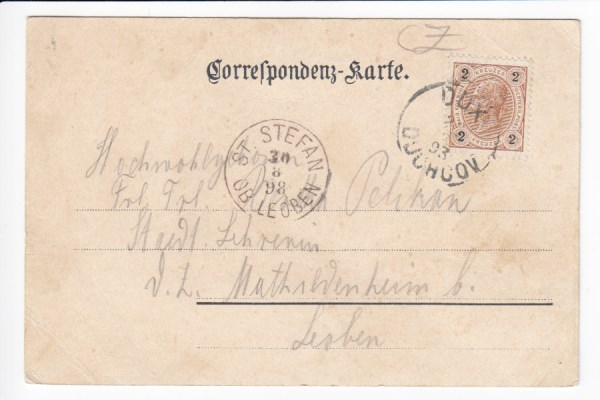 Correspondenz-Karte.
2 2
2 2
DUX
93
DUCHCOV
ST. STEFAN
30
8
98
OB LEOBEN
Hochwohlgeboren
Frl. Frl. Pelikan
Staedt. Lehrerin
d. Z. Mathildenheim b.
Leoben